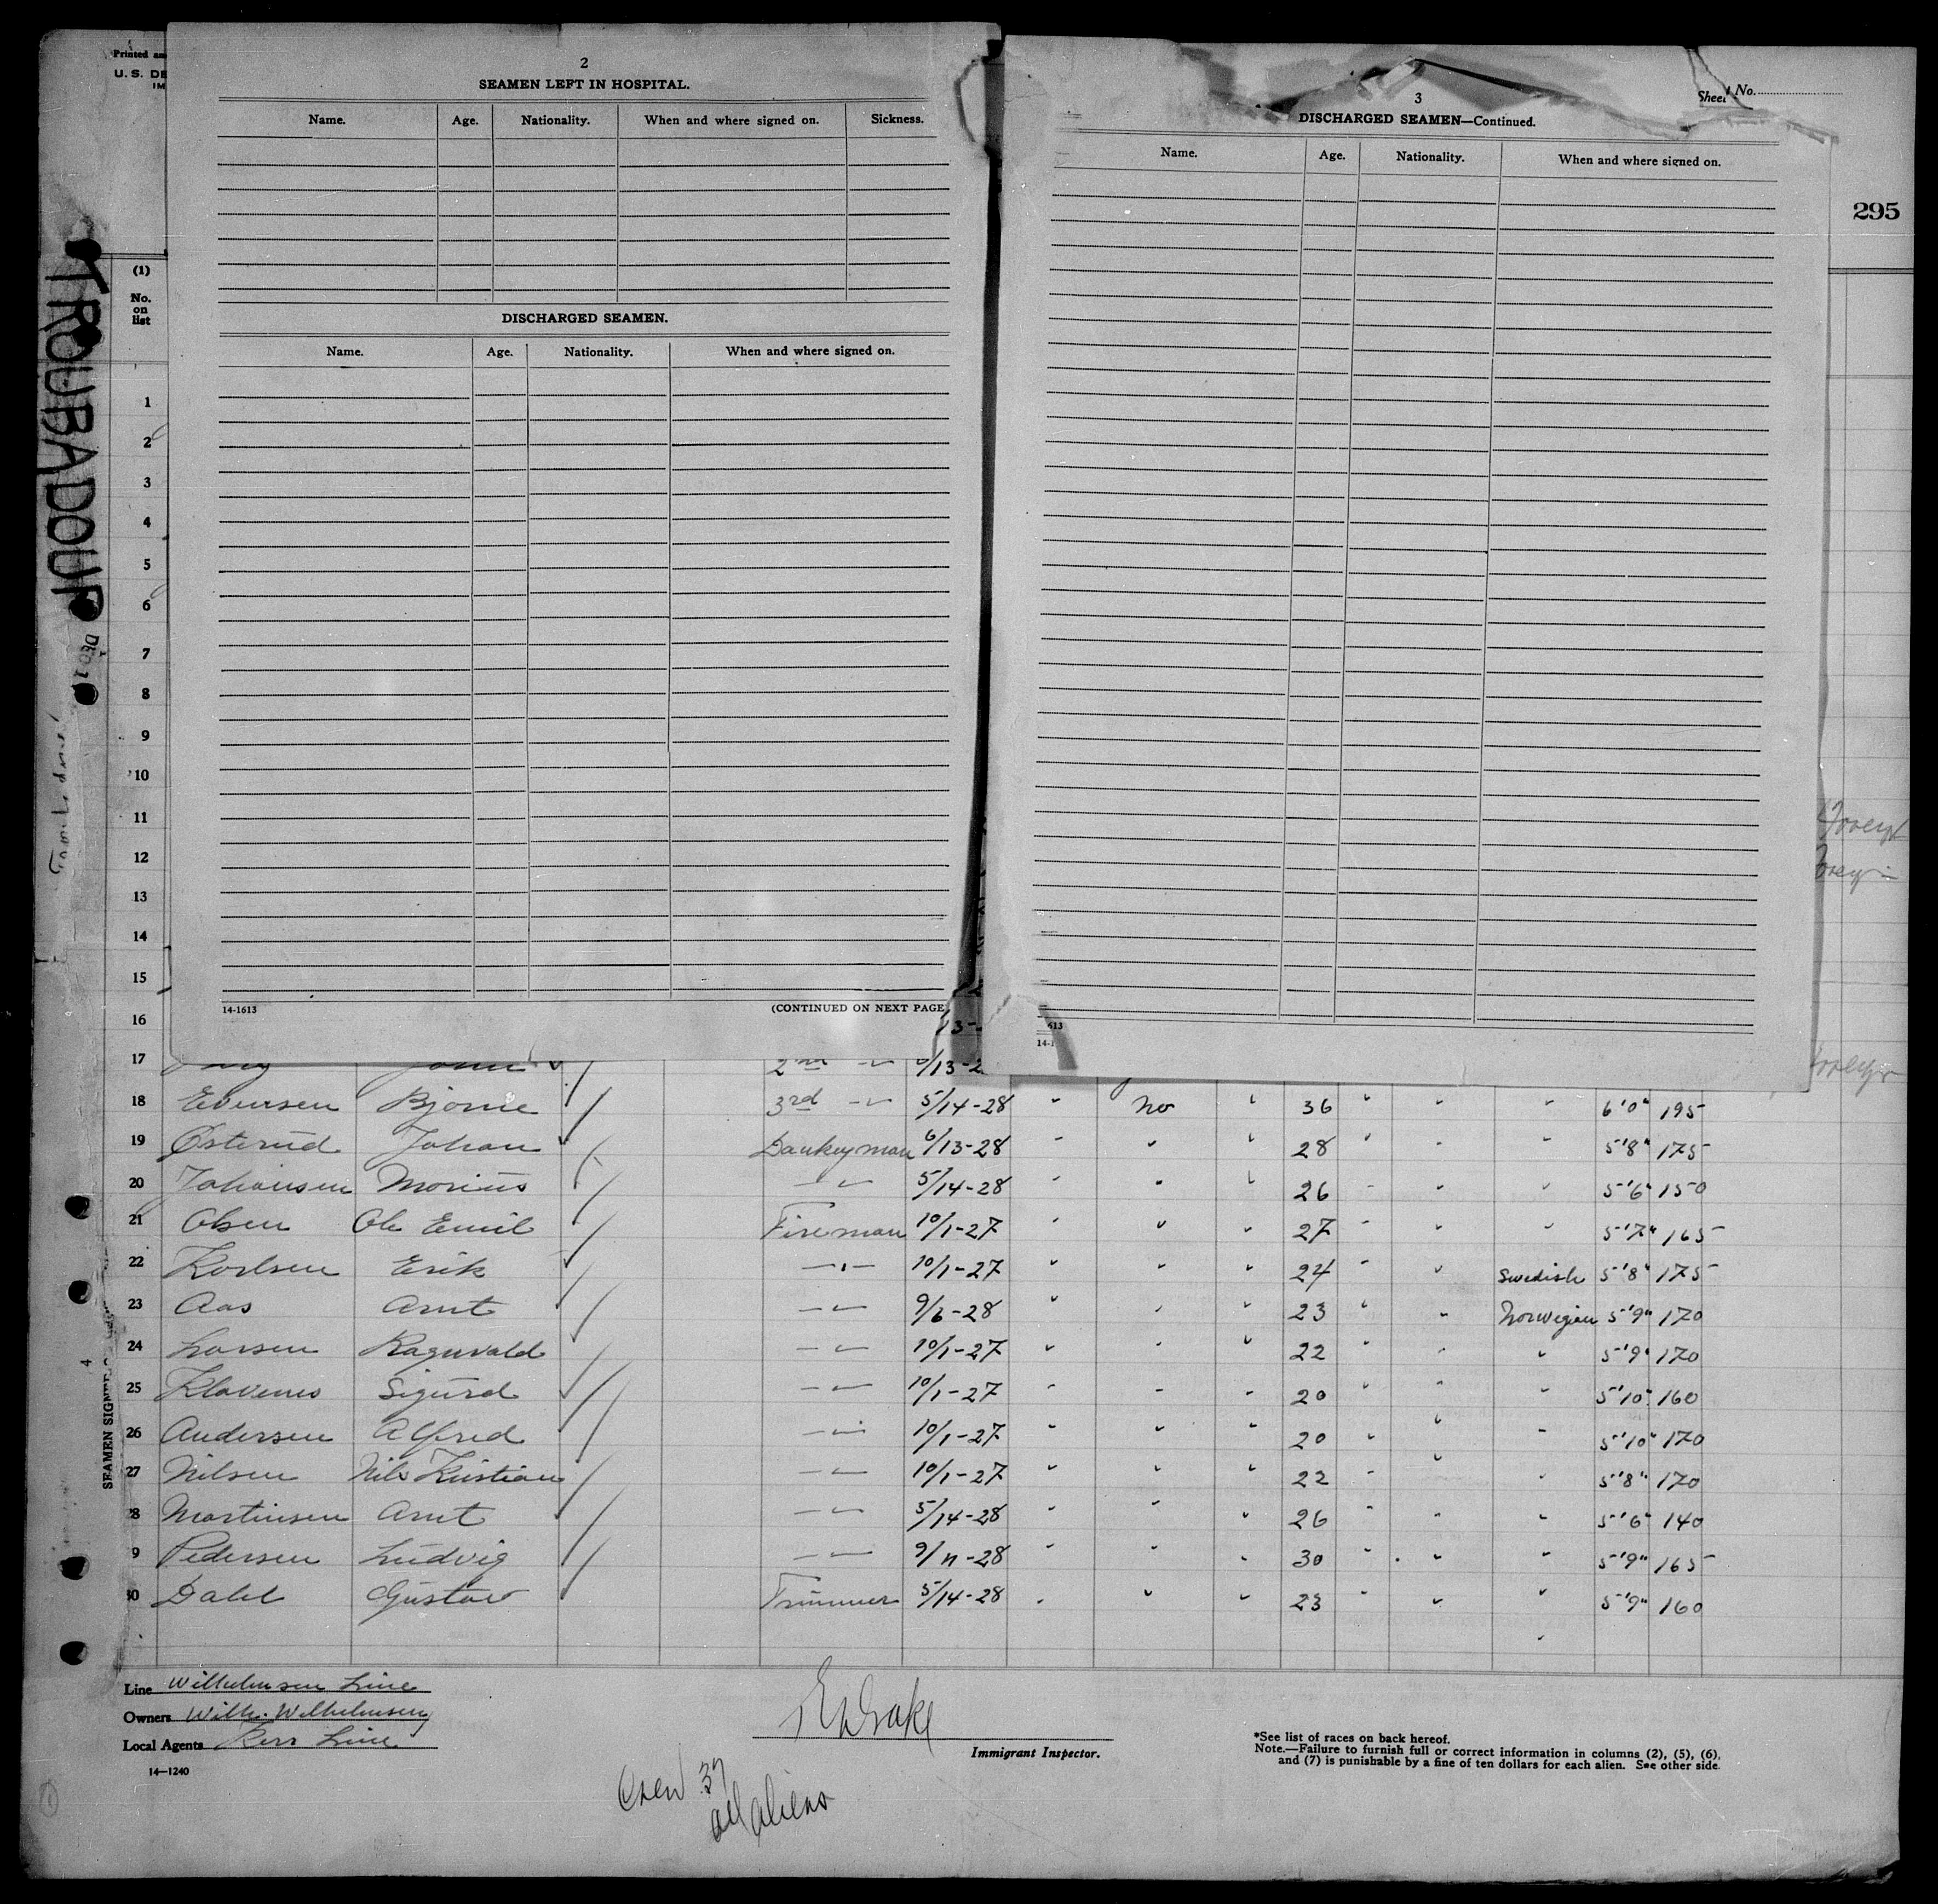 Printed an
U. S. DE
IM
TROUBADOUR
(1)
No.
on
list
1
2
3
4
5
6
7
8
9
10
11
12
13
14
15
16
2
SEAMEN LEFT IN HOSPITAL.
Name. Age. Nationality. When and where signed on. Sickness.
DISCHARGED SEAMEN.
Name. Age. Nationality. When and where signed on.
14-1613 (CONTINUED ON NEXT PAGE
Sheet No.
3
DISCHARGED SEAMEN—Continued.
Name. Age. Nationality. When and where signed on.
613
14-1
295
17 2nd 6/13-2
18 Evensen Bjarne 3rd 5/14-28 no 36 6'0" 195
19 Østerud Johan Dankeyman 6/13-28 " 28 5'8" 175
20 Johansen Morius " 5/14-28 " 26 5'6" 150
21 Olsen Ole Emil Fireman 10/1-27 " 27 5'7" 165
22 Karlsen Erik " 10/1-27 " 24 Swedish 5'8" 175
23 Aas Arnt " 9/6-28 " 23 Norwegian 5'9" 170
24 Larsen Ragnvald " 10/1-27 " 22 " 5'9" 170
25 Klavenes Sigurd " 10/1-27 " 20 " 5'10" 160
26 Andersen Alfred " 10/1-27 " 20 " 5'10" 170
27 Nilsen Nils Kristian " 10/1-27 " 22 " 5'8" 170
8 Martinsen Arnt " 5/14-28 " 26 " 5'6" 140
9 Pedersen Ludvig " 9/11-28 " 30 " 5'9" 165
30 Dahl Gustav Trimmer 5/14-28 " 23 " 5'9" 160
4
SEAMEN SIGNED
Line Wilhelmsen Line
Owners Wilh. Wilhelmsen
Local Agents Kerr Line
14—1240
Drake
Immigrant Inspector.
*See list of races on back hereof.
Note.—Failure to furnish full or correct information in columns (2), (5), (6),
and (7) is punishable by a fine of ten dollars for each alien. See other side.
Crew 37
all aliens